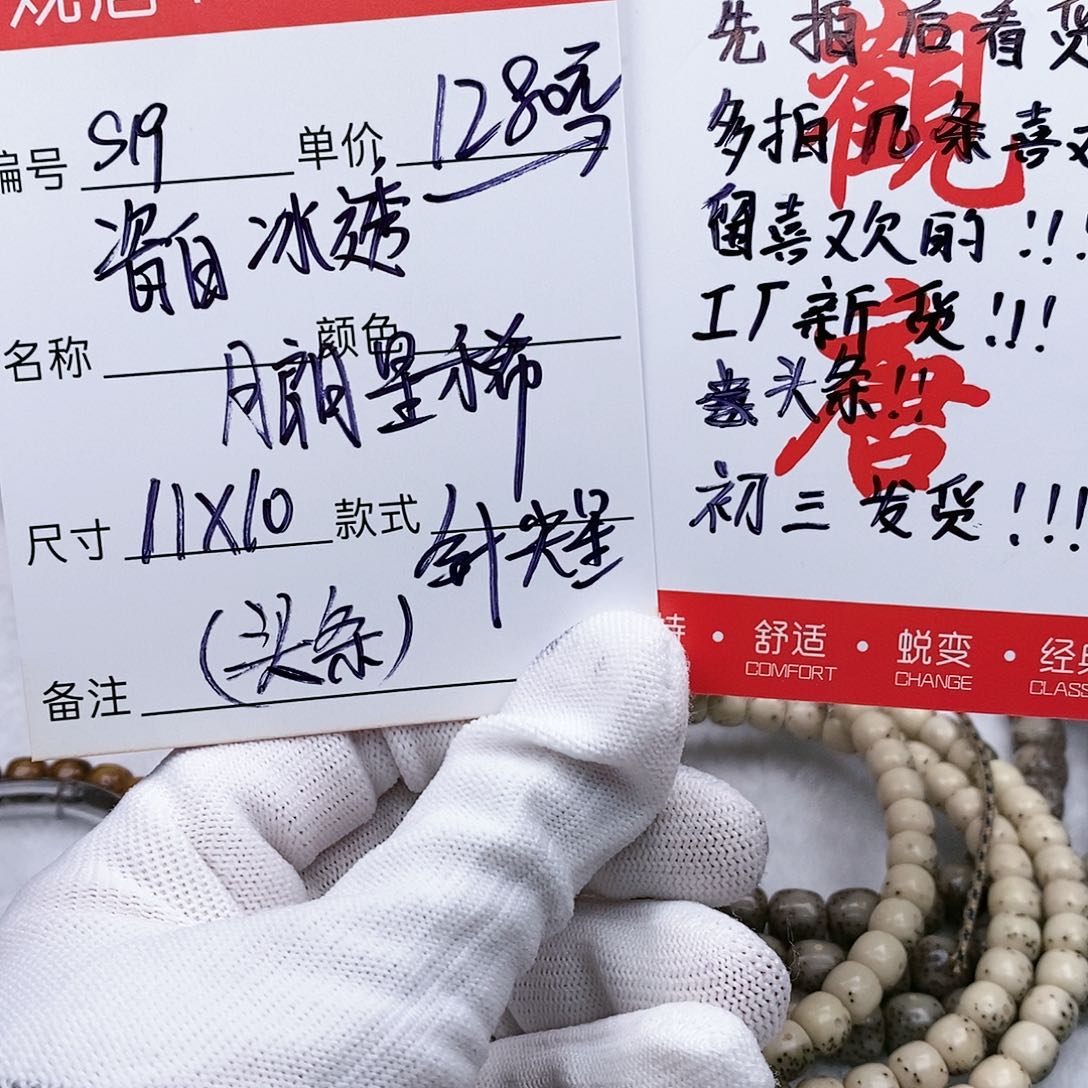 编号 S19 单价 1280元
瓷白 冰透
名称 颜色
月朗星稀
尺寸 11X10 款式 针尖星
(头条)
备注
先拍后看货
多拍几条喜欢
留喜欢的!!!
工厂新货!!!
头条!!
初三发货!!!
觀唐
· 舒适 · 蜕变 · 经典
COMFORT CHANGE CLASS